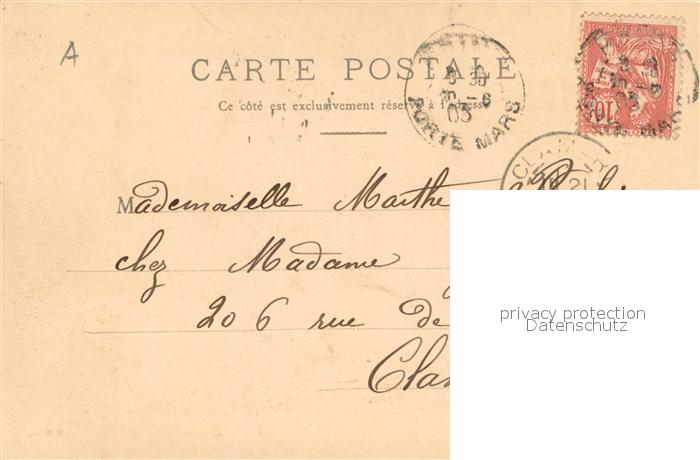 A
CARTE POSTALE
Ce côté est exclusivement réservé à l'adresse
03
PORTE MARS
10
CLAMART
21
Mademoiselle Marthe
chez Madame
206 rue de
Cla
privacy protection
Datenschutz